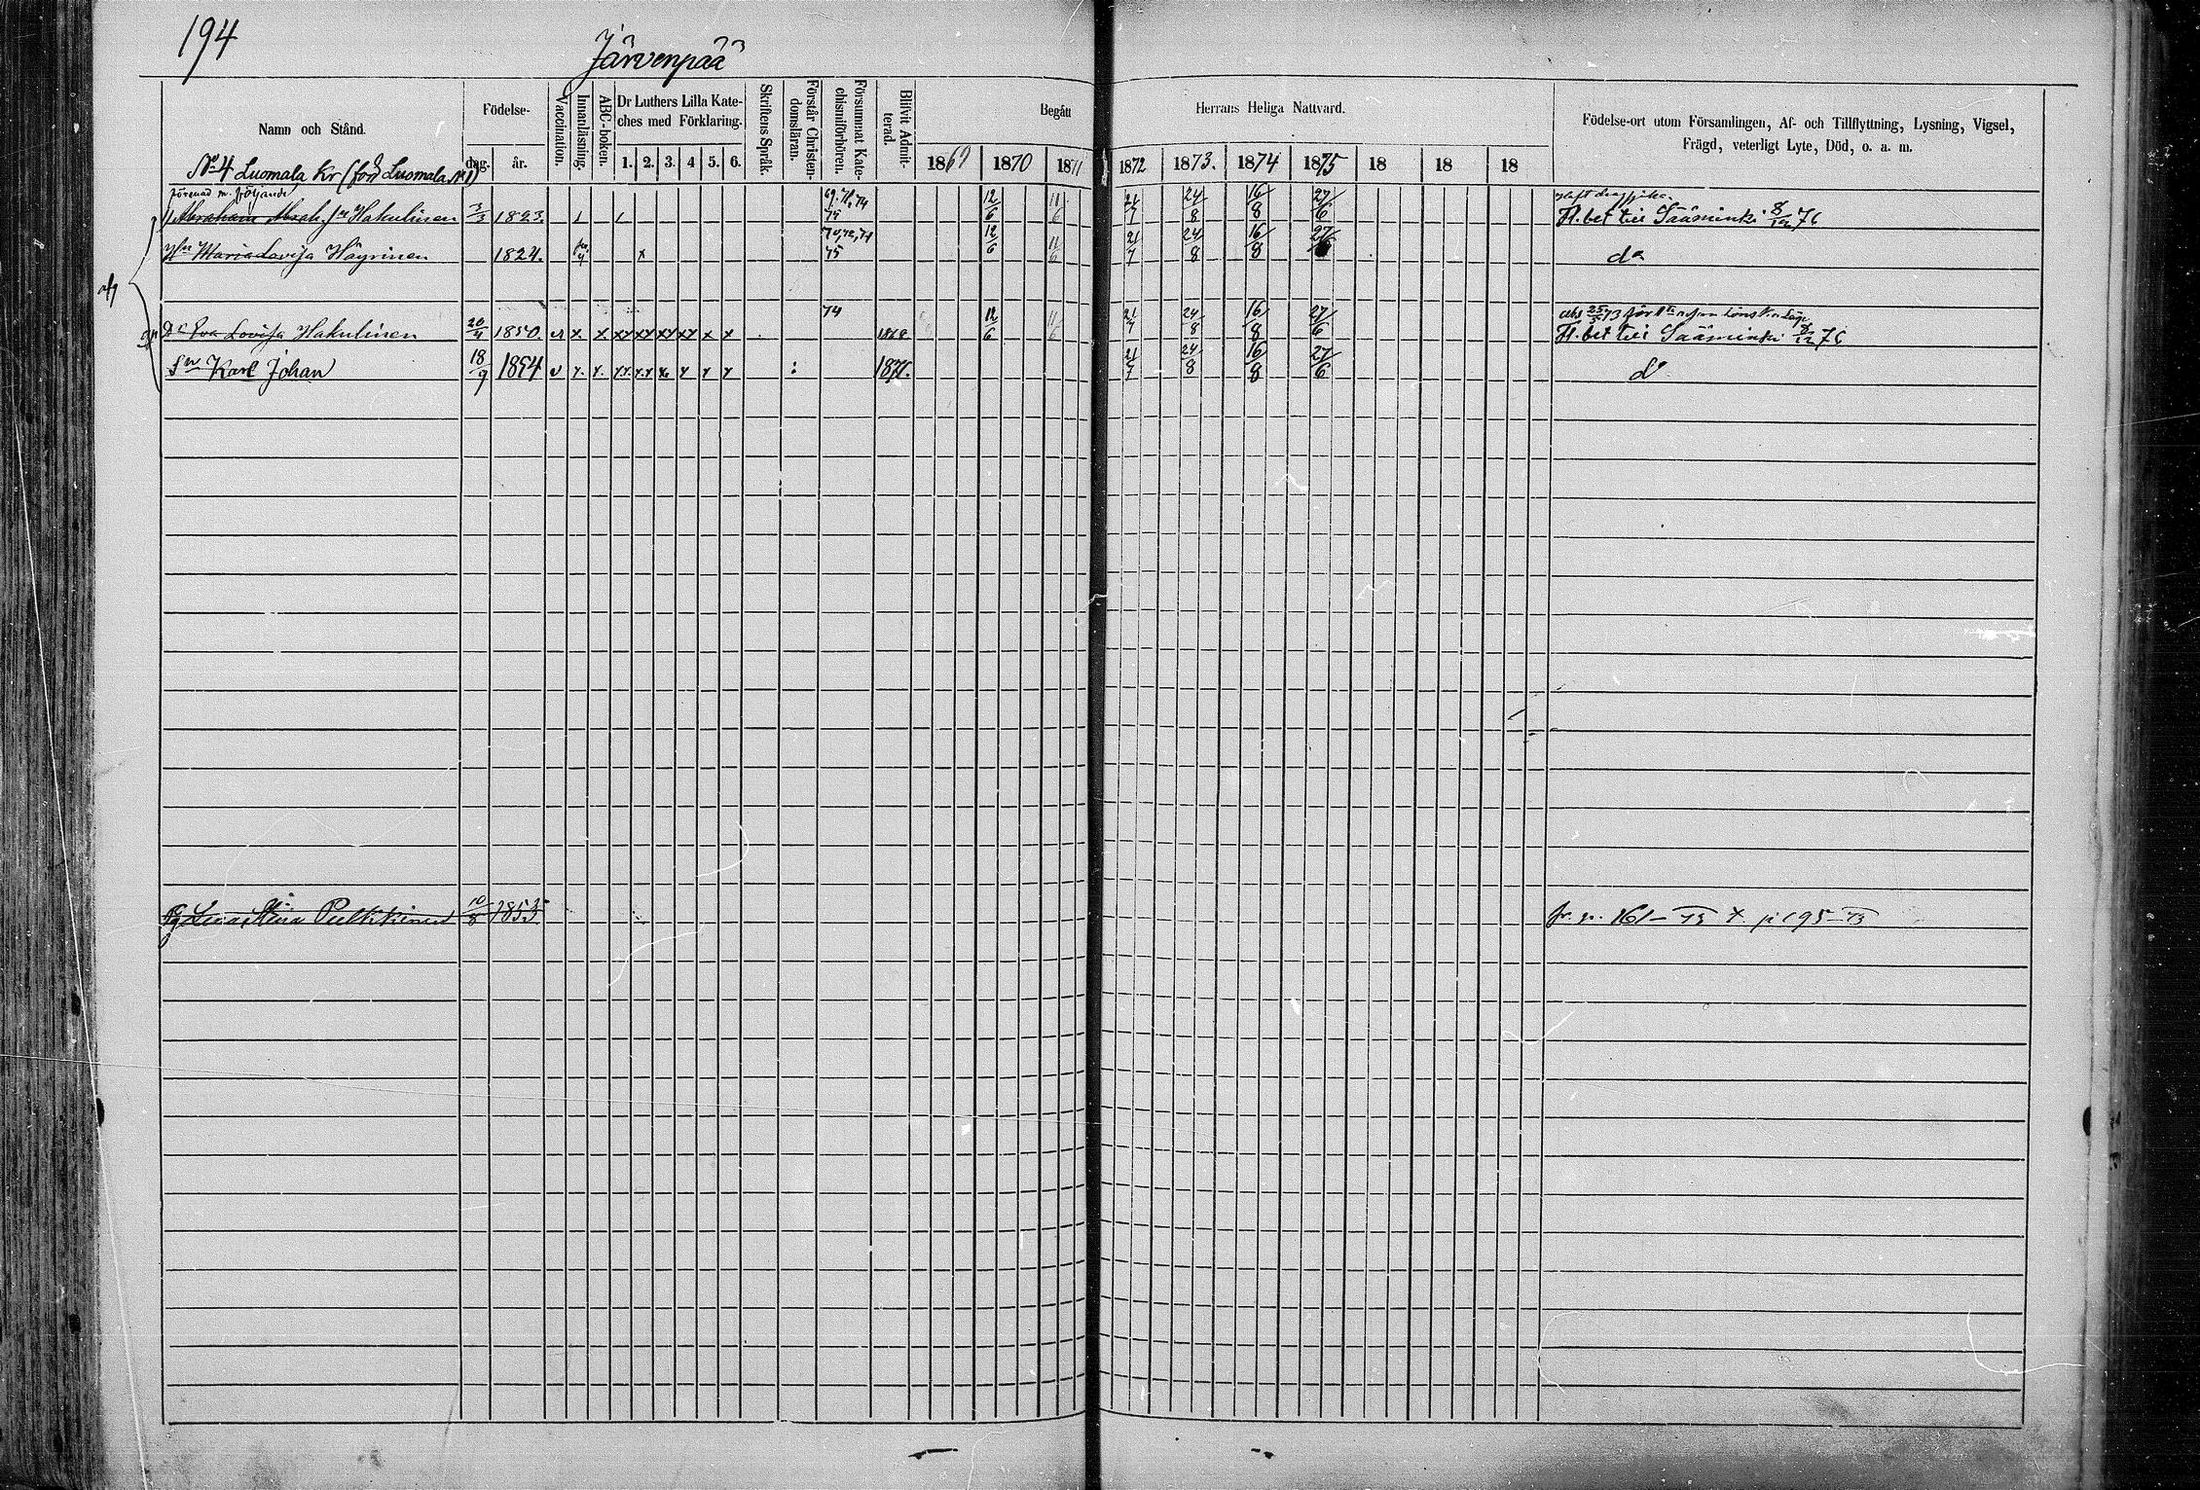 194
Järvenpää
Namn och Stånd.
Födelse-
dag.
år.
Vaccination.
Innanläsning.
ABC-boken.
Dr Luthers Lilla Kate-
ches med Förklaring.
1. 2. 3. 4 5. 6.
Skriftens Språk.
Förstår Christen-
domsläran.
Försummat Kate-
chismiförhören.
Blifvit Admit-
terad.
Begått Herrans Heliga Nattvard.
1869 1870 1871 1872 1873. 1874 1875 18 18 18
Födelse-ort utom Församlingen, Af- och Tillflyttning, Lysning, Vigsel,
Frägd, veterligt Lyte, Död, o. a. m.
No 4 Luomala Kr (förd Luomala No 1)
förenad m. följande
Abraham Abrah. Sn Hakulinen 3/3 1823. 75 12/6 11/6 21/7 24/8 16/8 27/6 Fl. bet till Sääminki 8/12 76
Hu Maria Lovisa Häyrinen 1824. x 75 12/6 11/6 21/7 24/8 16/8 27/6 do
74
Dr Eva Lovisa Hakulinen 20/4 1850. 1868 12/6 11/6 21/7 24/8 16/8 27/6 Fl. bet till Sääminki 8/12 76
Sn Karl Johan 18/9 1854 1871. 21/7 24/8 16/8 27/6 do
Pig Lena Stina Pulkkinen 10/8 1853 fr. p. 161 – 73 t. p 195 – 73